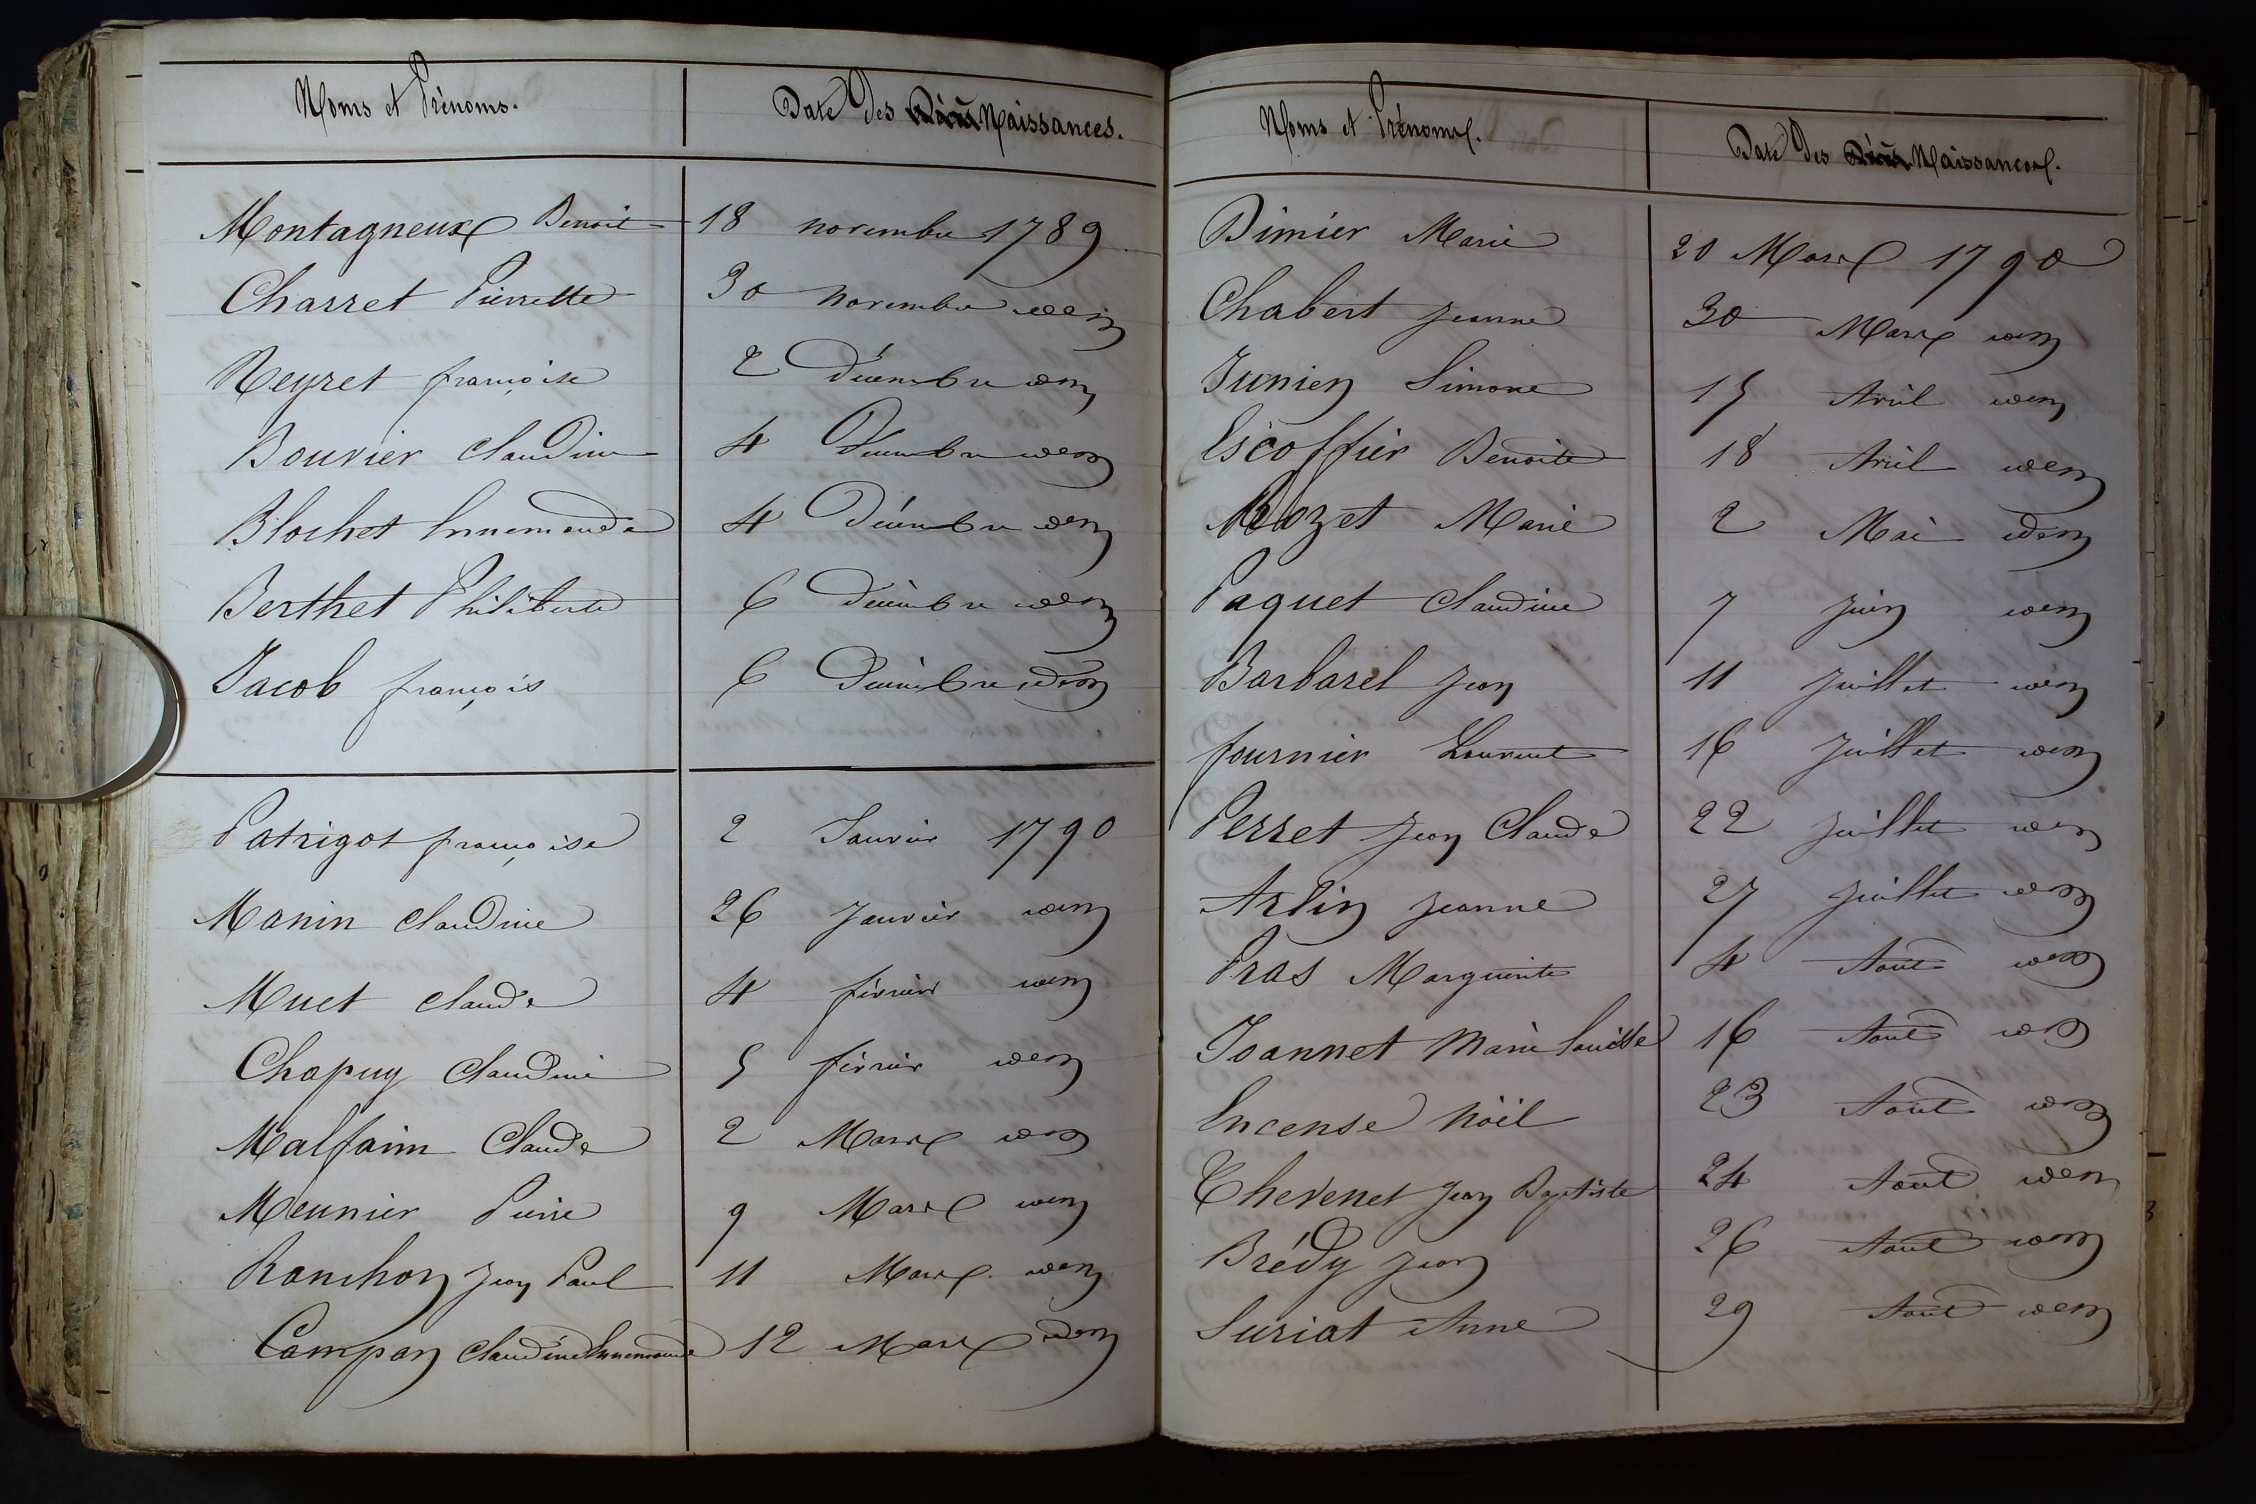 Noms et Prénoms.
Date des Décès Naissances.
Montagneux Benoit 18 novembre 1789
Charret Pierrette 30 novembre idem
Neyret françoise 2 Décembre idem
Bouvier Claudine 4 Décembre idem
Blochet Ennemonde 4 Décembre idem
Berthet Philiberte 6 Décembre idem
Jacob françois 6 Décembre idem
Patrigot françoise 2 Janvier 1790
Manin Claudine 26 Janvier idem
Muet Claude 4 février idem
Chapuy Claudine 5 février idem
Malfaim Claude 2 Mars idem
Meunier Pierre 9 Mars idem
Ranchon Jean Paul 11 Mars idem
Campan Claudine Ennemonde 12 Mars idem
Noms et Prénoms.
Date des Décès Naissances.
Dimier Marie 20 Mars 1790
Chabert Jeanne 30 Mars idem
Junien Simone 15 Avril idem
Escoffier Benoite 18 Avril idem
Rozet Marie 2 Mai idem
Paquet Claudine 7 Juin idem
Barbarel Jean 11 Juillet idem
fournier Laurent 16 Juillet idem
Perret Jean Claude 22 Juillet idem
Arlin Jeanne 27 Juillet idem
Pras Marguerite 4 Aout idem
Joannet Marie Louise 16 Aout idem
Encense Nöel 23 Aout idem
Thevenet Jean Baptiste 24 Aout idem
Brédy Jean 26 Aout idem
Suriat Anne 29 Aout idem